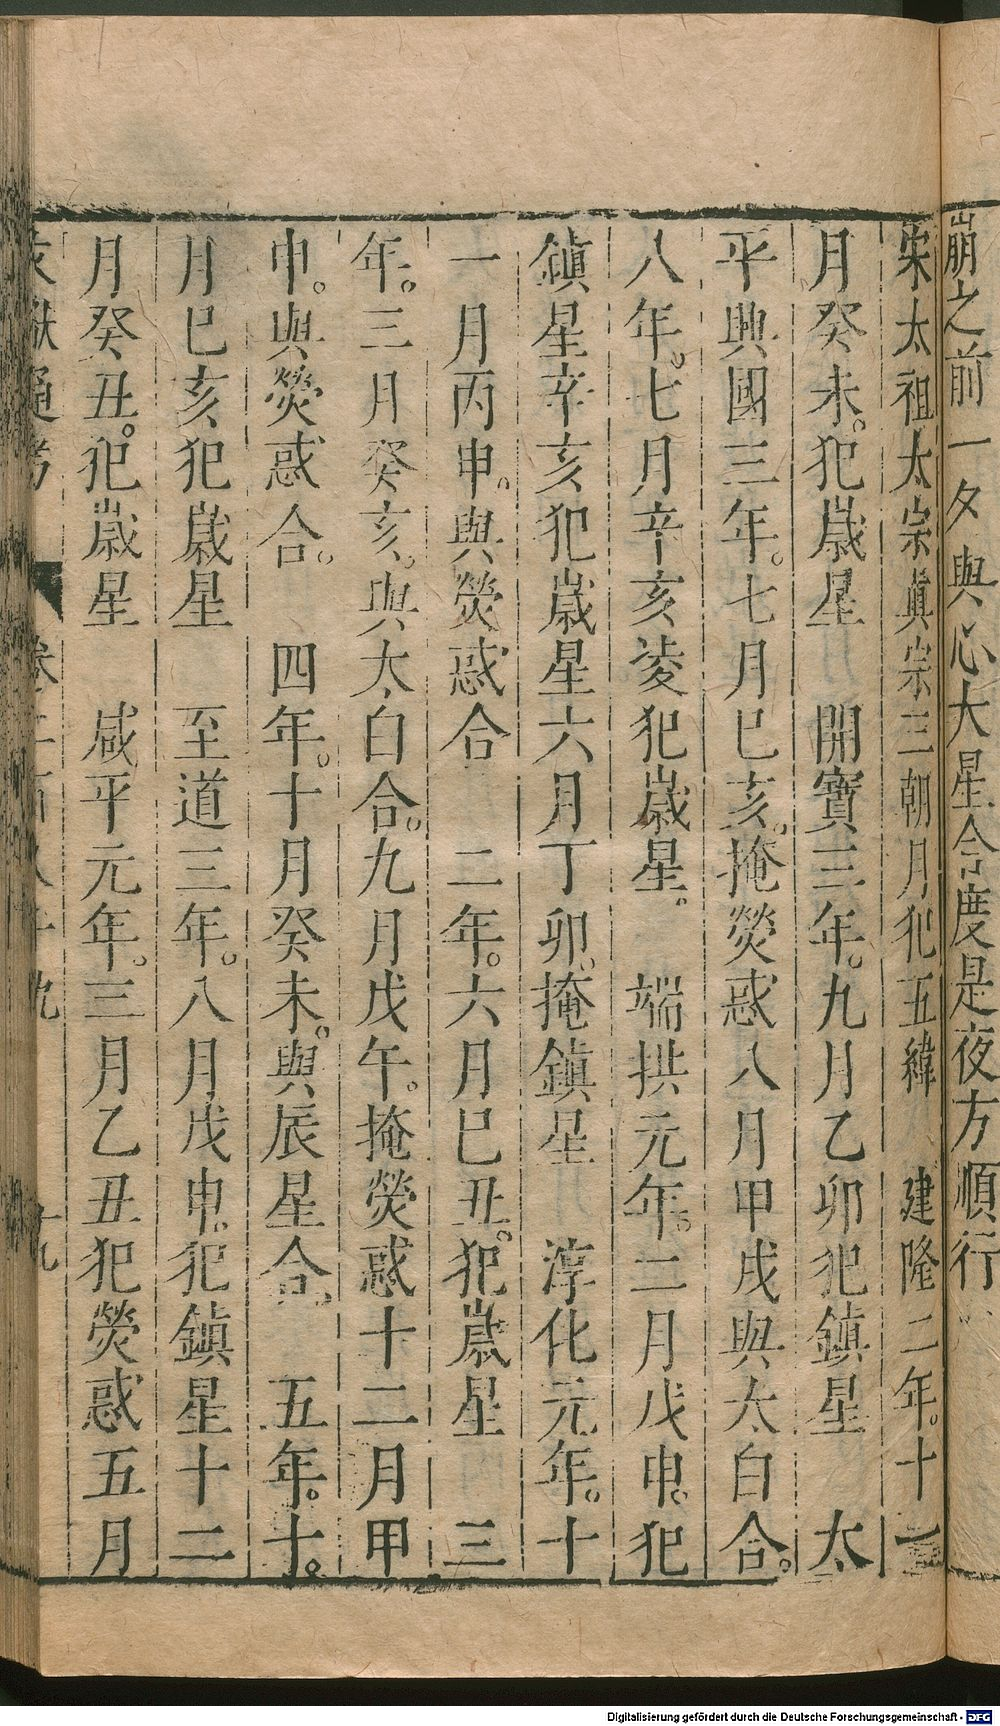 崩之前一夕與心大星合度是夜方順行
宋太祖太宗眞宗三朝月犯五緯　建隆二年。十一
月癸未。犯歲星　開寶三年。九月乙卯犯鎮星　太
平興國三年。七月巳亥。掩熒惑八月甲戌與太白合。
八年。七月辛亥凌犯歲星。　端拱元年。二月戊申。犯
鎮星辛亥犯歲星六月丁卯。掩鎮星　淳化元年。十
一月丙申。與熒惑合　二年。六月巳丑。犯歲星　三
年。三月癸亥。與太白合。九月戊午。掩熒惑十二月甲
申。與熒惑合。　四年。十月癸未。與辰星合。　五年。十。
月巳亥犯歲星　至道三年。八月戊申。犯鎮星十二
月癸丑。犯歲星　咸平元年。三月乙丑犯熒惑五月
文獻通考　卷二百八十九　十九
Digitalisierung gefördert durch die Deutsche Forschungsgemeinschaft - DFG